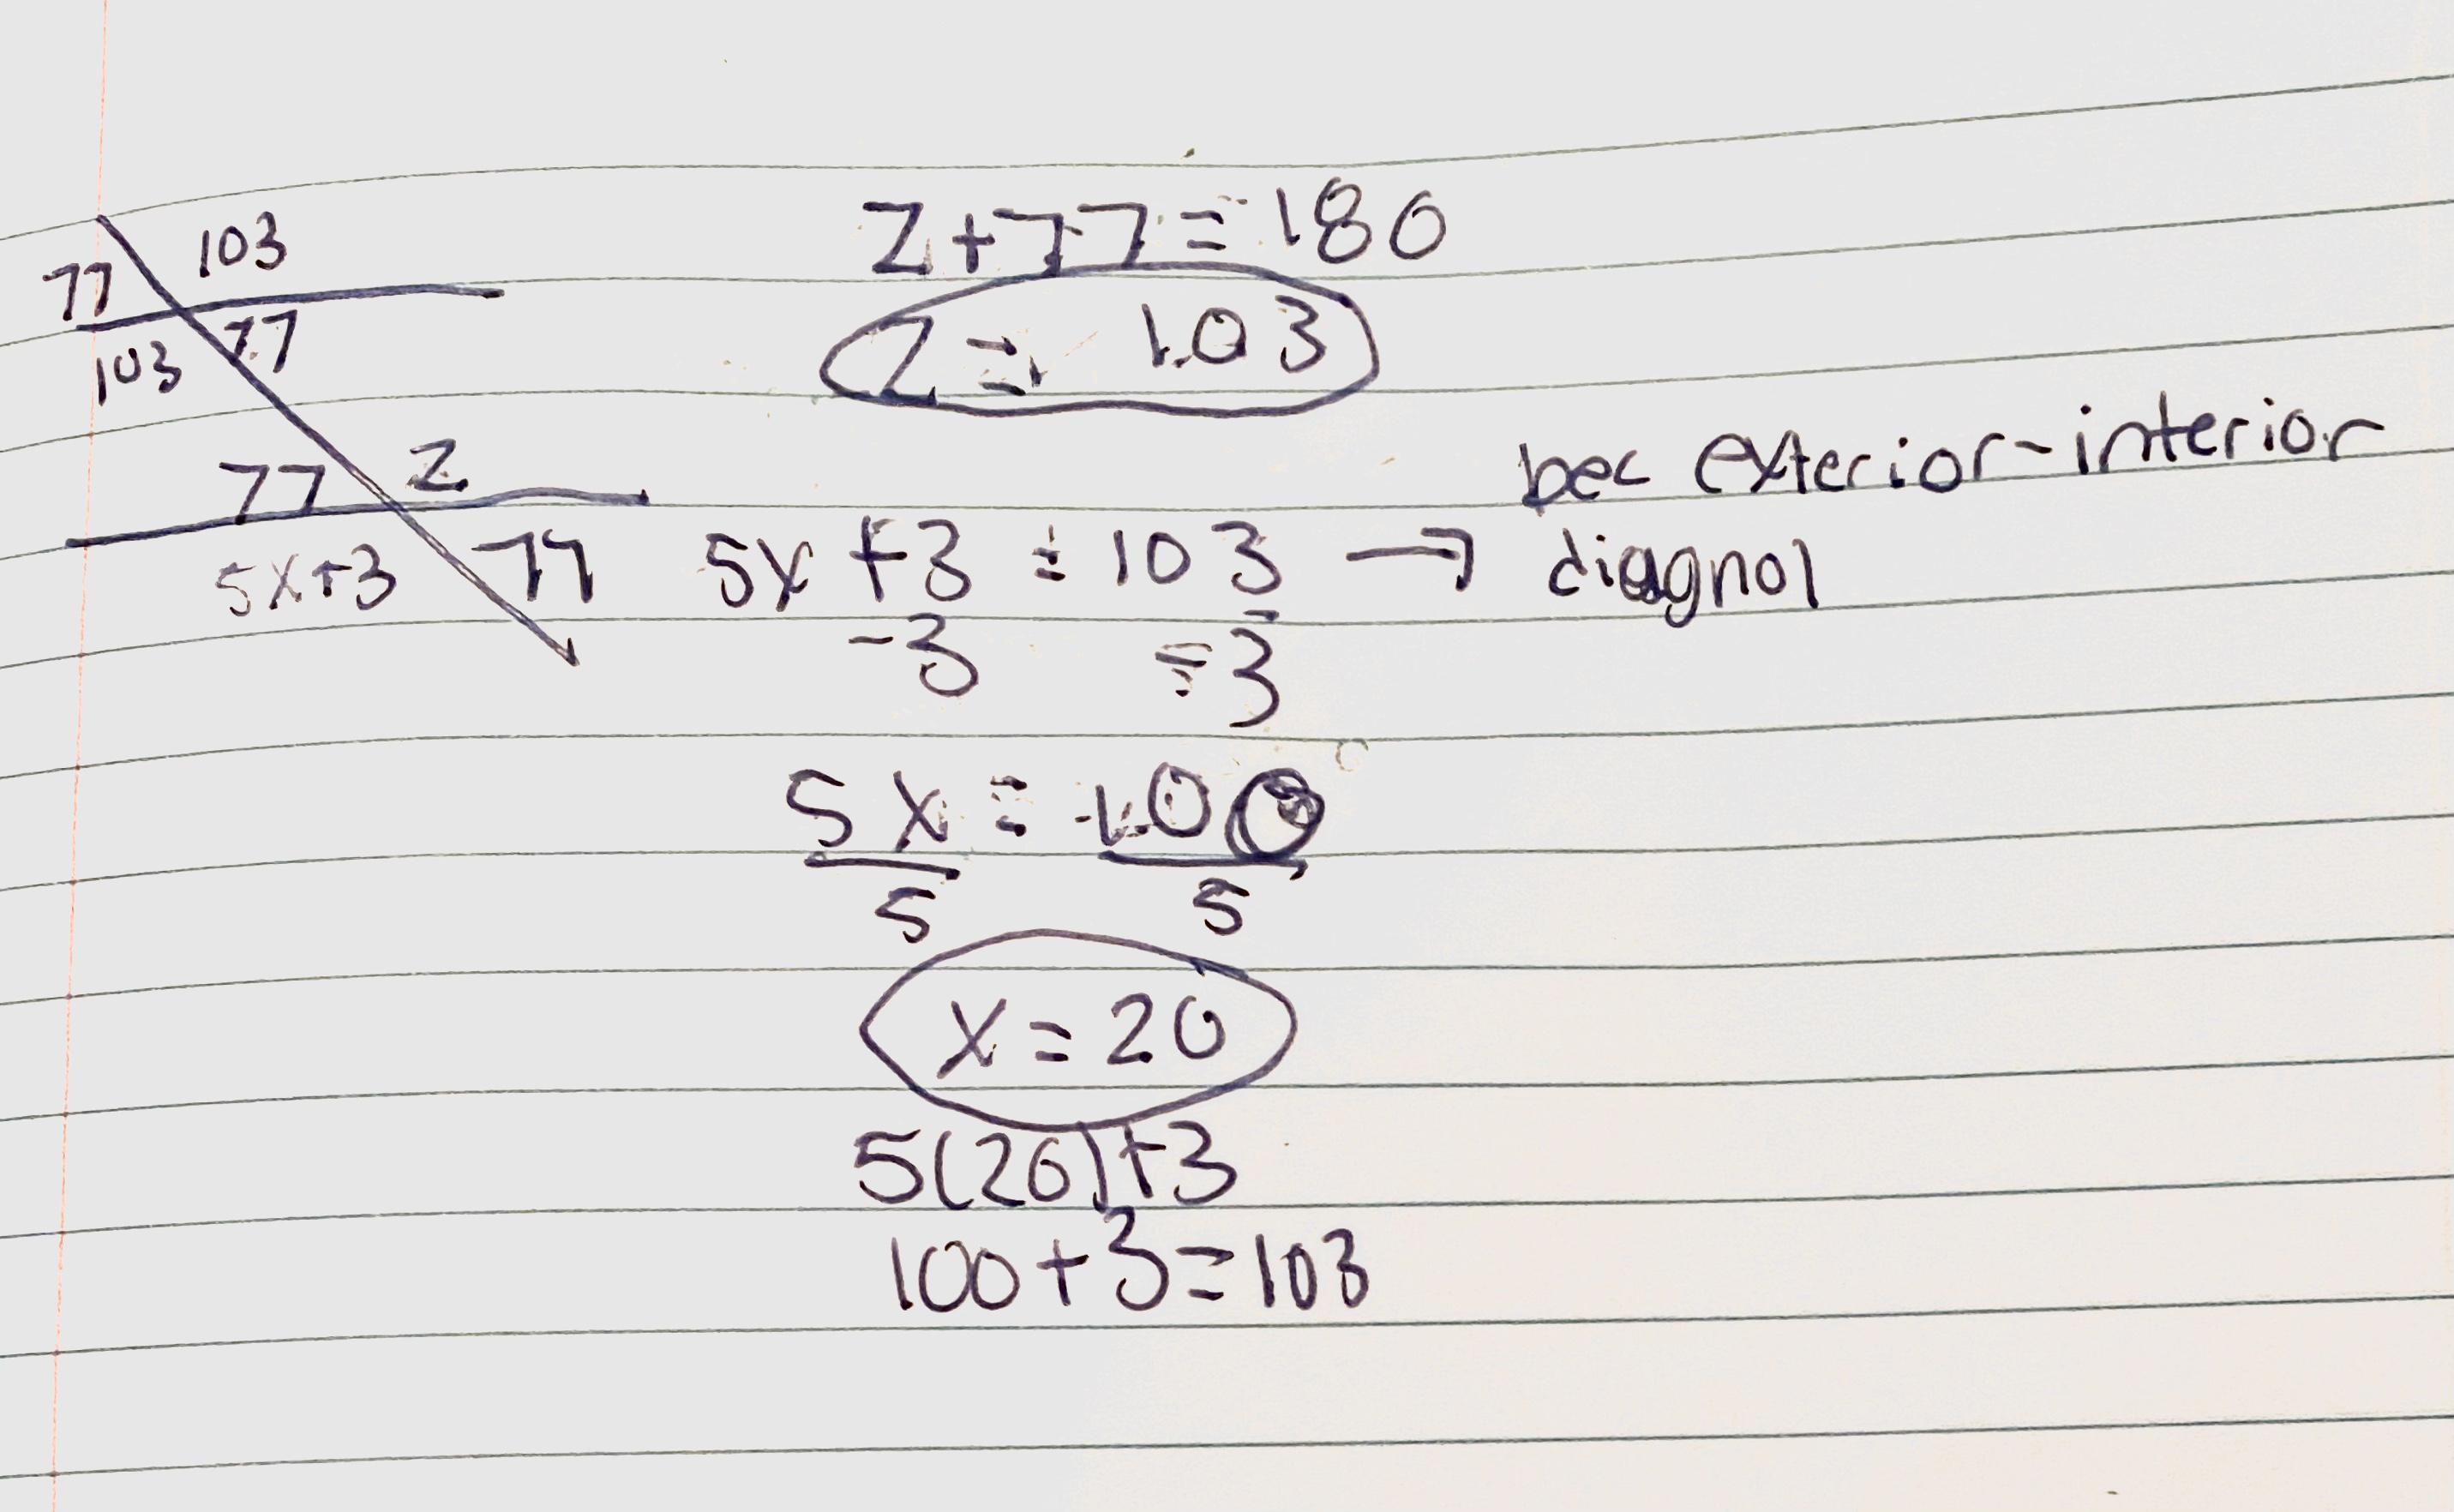 103
77
77
103
Z
77
5x+3
77
Z+77=180
Z= 103
bec exterior-interior
5x+3 = 103 → diagnol
-3 -3
5x = 100
5 5
x=20
5(20)+3
100+3=103